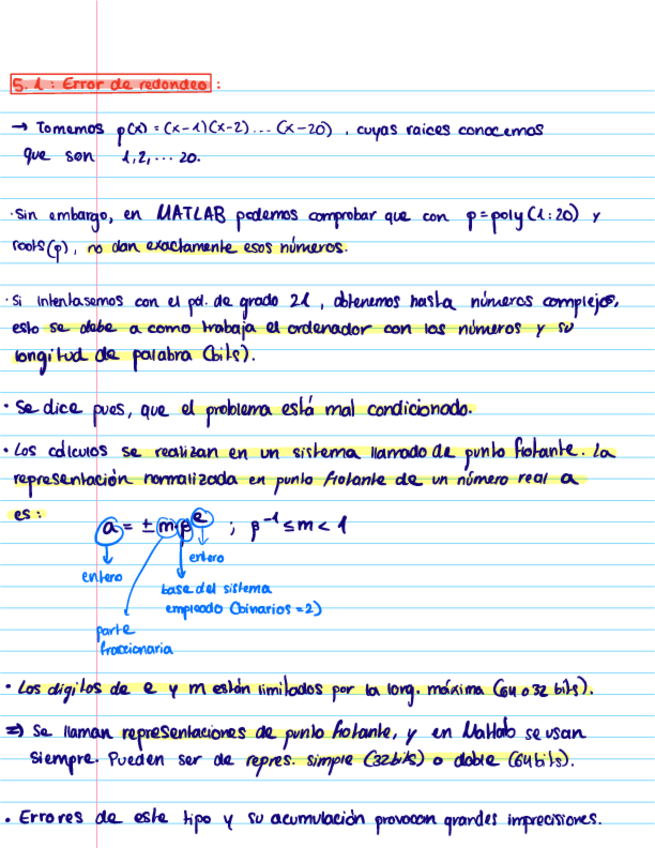 5.1: Error de redondeo:
→ Tomemos p(x) = (x-1)(x-2)...(x-20), cuyas raices conocemos
que son 1,2,... 20.
·Sin embargo, en MATLAB podemos comprobar que con p=poly(1:20) y
roots(p), no dan exactamente esos números.
·Si intentasemos con el pol. de grado 21, obtenemos hasta números complejos,
esto se debe a como trabaja el ordenador con los números y su
longitud de palabra (bits).
· Se dice pues, que el problema está mal condicionado.
· Los cálculos se realizan en un sistema llamado de punto flotante. La
representación normalizada en punto flotante de un número real a
es:
a = ± m β^e ; β^-1 ≤ m < 1
entero
entero
base del sistema
empleado (binarios = 2)
parte
fraccionaria
· Los dígitos de e y m están limitados por la long. máxima (64 o 32 bits).
⇒ Se llaman representaciones de punto flotante, y en Matlab se usan
siempre. Pueden ser de repres. simple (32bits) o doble (64bits).
· Errores de este tipo y su acumulación provocan grandes imprecisiones.